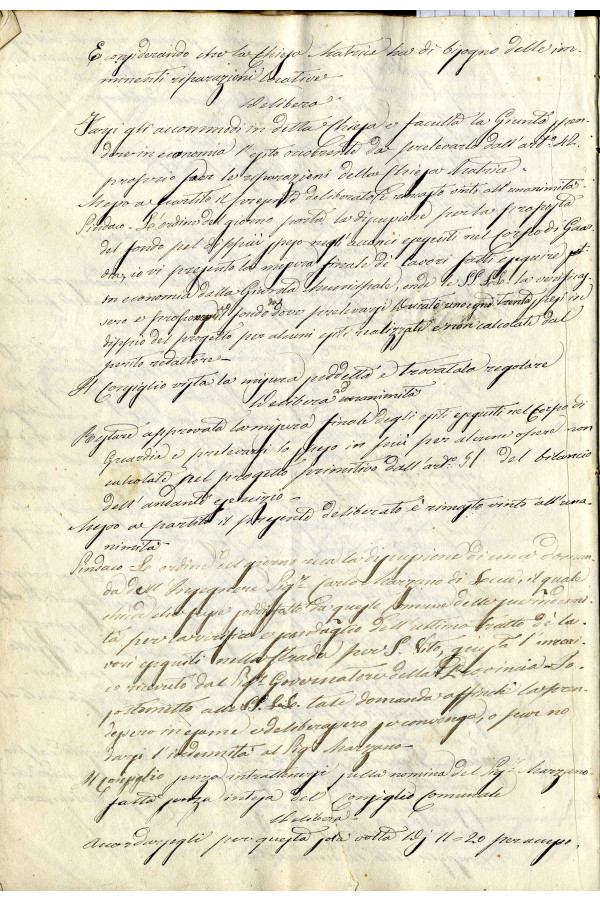 Considerando che la Chiesa Matrice ha di bisogno delle im-
minenti riparazioni locative
Delibera
Farsi gli accommodi in detta Chiesa e facultà la Giunta spen-
dere in economia l'esito occorrente da prelevarlo dall'art.
proprio per le riparazioni della Chiesa Matrice.
Messo a partito il presente deliberato è rimasto vinto all'unanimità
Sindaco. L'ordine del giorno porta la discussione per la proposta
del fondo pel dippiù speso negli accomi eseguiti nel Corpo di Guar-
dia; io vi presento la misura finale di lavori fatti eseguire
in economia dalla Giunta Municipale, onde le SS. LL. la verificas-
sero e il fondo dove prelevarsi Ducati uno e gna trenta spesi in
dippiù del progetto per alcuni esiti realizzati e non calcolati dal
perito redattore
Il Consiglio vista la misura suddetta e trovatala regolare
Delibera ad unanimità
Restare approvata la misura finale degli esiti eseguiti nel Corpo di
Guardia e prelevarsi lo speso in più per alcune opere non
calcolate nel progetto primitivo dall'art. 51 del bilancio
dell'andante esercizio
Messo a partito il presente deliberato è rimasto vinto all'una-
nimità
Sindaco. L'ordine del giorno reca la discussione di una doman-
da dell'Ingegnere Sig. Carlo Marzano di Lecce, il quale
chiede che fusse soddisfatto da questo Comune delle sue indenni-
tà per la verifica e scandaglio dell'ultimo tratto de' la-
vori eseguiti nella strada per S. Vito, giusta l'incari-
co ricevuto dal Sig. Governatore della Provincia. Io
sottometto alle SS. LL. tale domanda affinchè la pren-
dessero in esame e deliberassero se convenga, o pure no
darsi l'indennità al Sig. Marzano
Il Consiglio senza intrattenersi sulla nomina del Sig. Marzano
fatta senza intesa del Consiglio Comunale
Delibera
Accordarsegli per questa sola volta D. 11=20 per